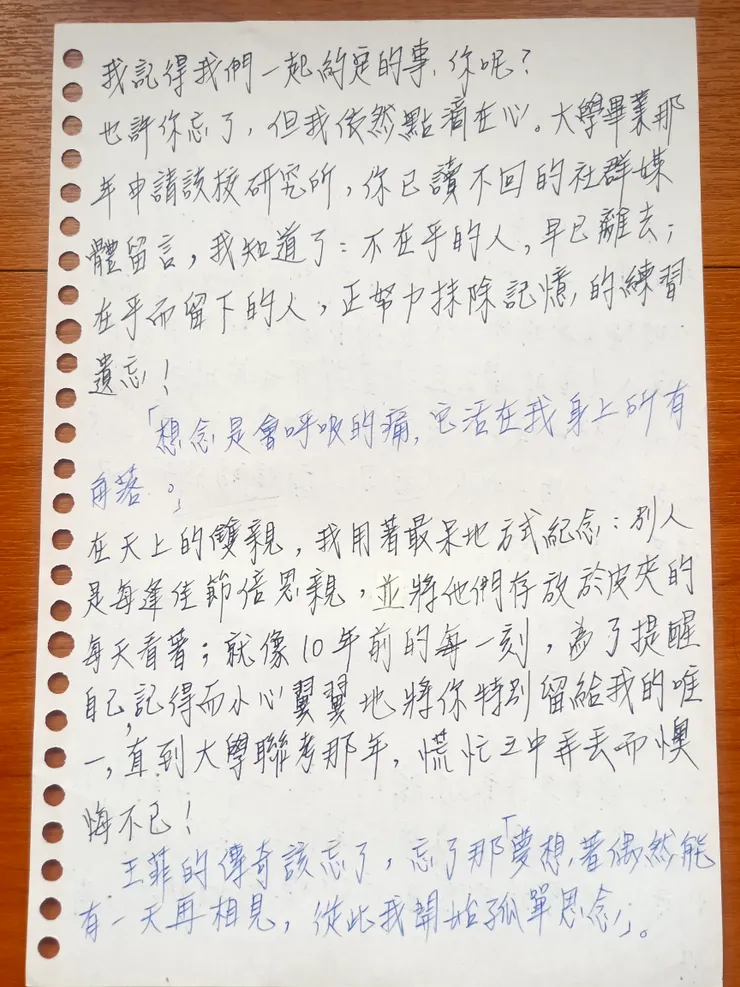 我記得我們一起約定的事,你呢?
也許你忘了,但我依然點滴在心。大學畢業那
年申請該校研究所,你已讀不回的社群媒
體留言,我知道了:不在乎的人,早已離去;
在乎而留下的人,正努力抹除記憶,的練習
遺忘!
「想念是會呼吸的痛,它活在我身上所有
角落。」
在天上的雙親,我用著最呆地方式紀念:別人
是每逢佳節倍思親,並將他們存放於皮夾的
每天看著;就像10年前的每一刻,為了提醒
自己,記得而小心翼翼地將你特別留給我的唯
一,直到大學聯考那年,慌忙之中弄丟而懊
悔不已!
王菲的傳奇該忘了,忘了那「夢想著偶然能
有一天再相見,從此我開始孤單思念」。